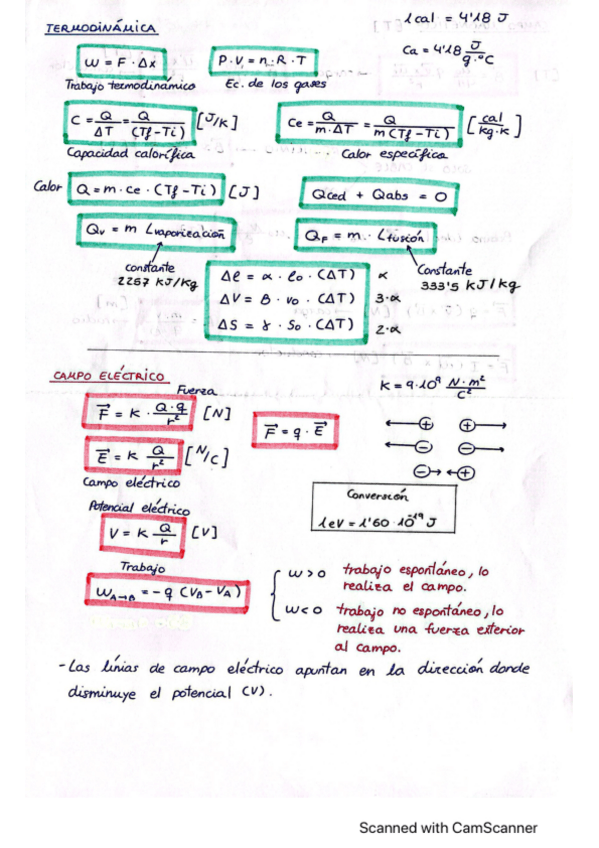 TERMODINÁMICA
1 cal = 4'18 J
Ca = 4'18 J/g·ºC
W = F · Δx
P·V = n·R·T
Trabajo termodinámico
Ec. de los gases
C = Q/ΔT = Q/(Tf-Ti) [J/K]
Ce = Q/m·ΔT = Q/m(Tf-Ti) [cal/kg·K]
Capacidad calorífica
Calor específico
Calor Q = m·ce·(Tf-Ti) [J]
Qced + Qabs = 0
Qv = m Lvaporización
QF = m · Lfusión
constante
2257 KJ/Kg
Constante
333'5 KJ/Kg
Δl = α · lo · (ΔT) α
ΔV = β · Vo · (ΔT) 3·α
ΔS = γ · So · (ΔT) 2·α
CAMPO ELÉCTRICO
K = 9·10⁹ N·m²/C²
Fuerza
F = K · Q·q/r² [N]
F = q · E
E = K Q/r² [N/C]
Campo eléctrico
Potencial eléctrico
V = K Q/r [V]
Conversión
1eV = 1'60·10⁻¹⁹ J
Trabajo
WA→B = -q (VB - VA)
W>0 trabajo espontáneo, lo
realiza el campo.
W<0 trabajo no espontáneo, lo
realiza una fuerza exterior
al campo.
- Las línias de campo eléctrico apuntan en la dirección donde
disminuye el potencial (V).
Scanned with CamScanner